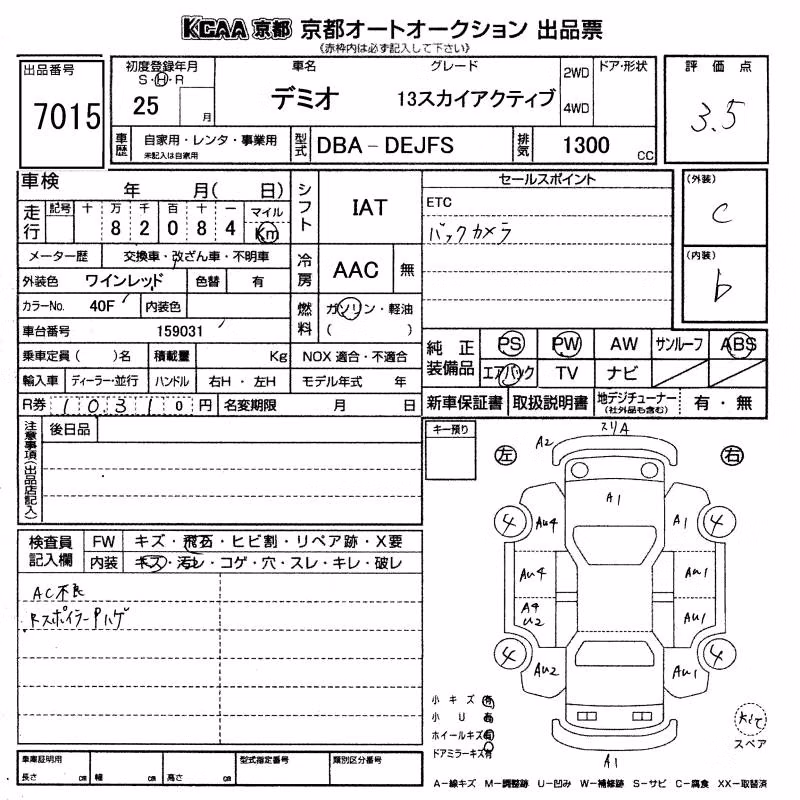 KCAA 京都 京都オートオークション 出品票
《赤枠内は必ず記入して下さい》
出品番号
7015
初度登録年月
S・H・R
25 月
車名
デミオ
グレード
13スカイアクティブ
2WD
4WD
ドア・形状
評価点
3.5
車歴
自家用・レンタ・事業用
未記入は自家用
型式
DBA-DEJFS
排気
1300 cc
車検 年 月( 日)
走行
記号 十 万 千 百 十 一
8 2 0 8 4
マイル
Km
メーター歴 交換車・改ざん車・不明車
外装色 ワインレッド 色替 有
カラーNo. 40F 内装色
車台番号 159031
乗車定員 ( )名 積載量 Kg NOX 適合・不適合
輸入車 ディーラー・並行 ハンドル 右H・左H モデル年式 年
R券 10310円 名変期限 月 日
シフト
IAT
冷房
AAC 無
燃料
ガソリン・軽油
( )
セールスポイント
ETC
バックカメラ
(外装)
c
(内装)
b
純正装備品
PS PW AW サンルーフ ABS
エアバック TV ナビ
新車保証書 取扱説明書 地デジチューナー
(社外品も含む)
有・無
注意事項(出品店記入)
後日品
検査員記入欄
FW キズ・飛石・ヒビ割・リペア跡・X要
内装 キズ・汚レ・コゲ・穴・スレ・キレ・破レ
AC不良
RスポイラーPハゲ
キー預り
スリA
A2
左
右
A1
4 Au4 A1 4
Au4 Au1
A4
U2
Au1
4 Au2 Au1 4
小キズ 有
小U 有
ホイールキズ 有
ドアミラーキズ 有
A1
スペア
車庫証明用
長さ cm 幅 cm 高さ cm
型式指定番号
類別区分番号
A-線キズ M-調整跡 U-凹み W-補修跡 S-サビ C-腐食 XX-取替済